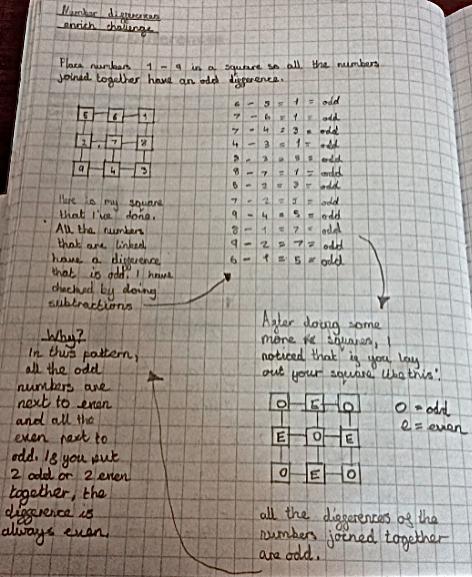 Number differences
enrich challenge
Place numbers 1 - 9 in a square so all the numbers
joined together have an odd difference.
5 6 1
2 7 8
9 4 3
6 - 5 = 1 = odd
7 - 6 = 1 = odd
7 - 4 = 3 = odd
4 - 3 = 1 = odd
8 - 3 = 5 = odd
8 - 7 = 1 = odd
5 - 2 = 3 = odd
7 - 2 = 5 = odd
9 - 4 = 5 = odd
8 - 1 = 7 = odd
9 - 2 = 7 = odd
6 - 1 = 5 = odd
Here is my square
that I've done.
All the numbers
that are linked
have a difference
that is odd. I have
checked by doing
subtractions
After doing some
more squares, I
noticed that if you lay
out your square like this:
O E O
E O E
O E O
O = odd
e = even
all the differences of the
numbers joined together
are odd.
Why?
In this pattern,
all the odd
numbers are
next to even
and all the
even next to
odd. If you put
2 odd or 2 even
together, the
difference is
always even.